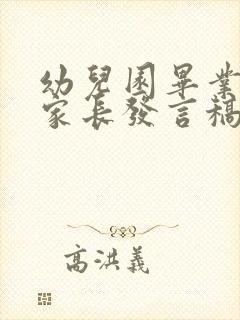 幼兒園畢業
家長發言稿
高洪義